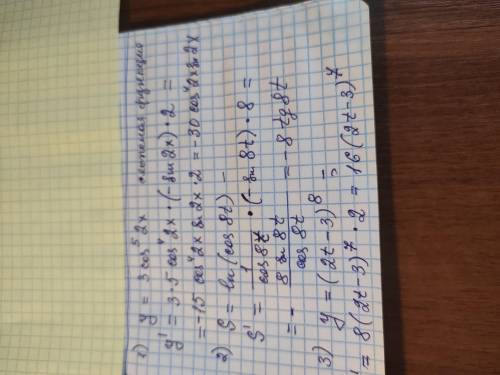 1) y = 3 cos⁵ 2x сложная функция
y' = 3·5 cos⁴ 2x · (-sin 2x) · 2 =
= -15 cos⁴ 2x sin 2x · 2 = -30 cos⁴ 2x sin 2x
2) S = ln (cos 8t) -
S' = 1/cos 8t · (-sin 8t) · 8 =
= - 8 sin 8t/cos 8t = -8 tg 8t
3) y = (2t-3)⁸ =
' = 8(2t-3)⁷ · 2 = 16(2t-3)⁷